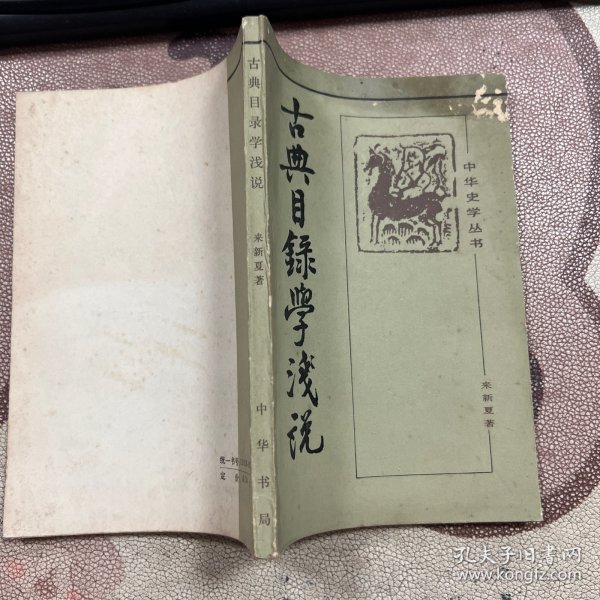 古典目錄學淺説
中华史学丛书
来新夏著
古典目录学浅说
来新夏著
中华书局
统一书号
定价
孔夫子旧书网
www.kongfz.com